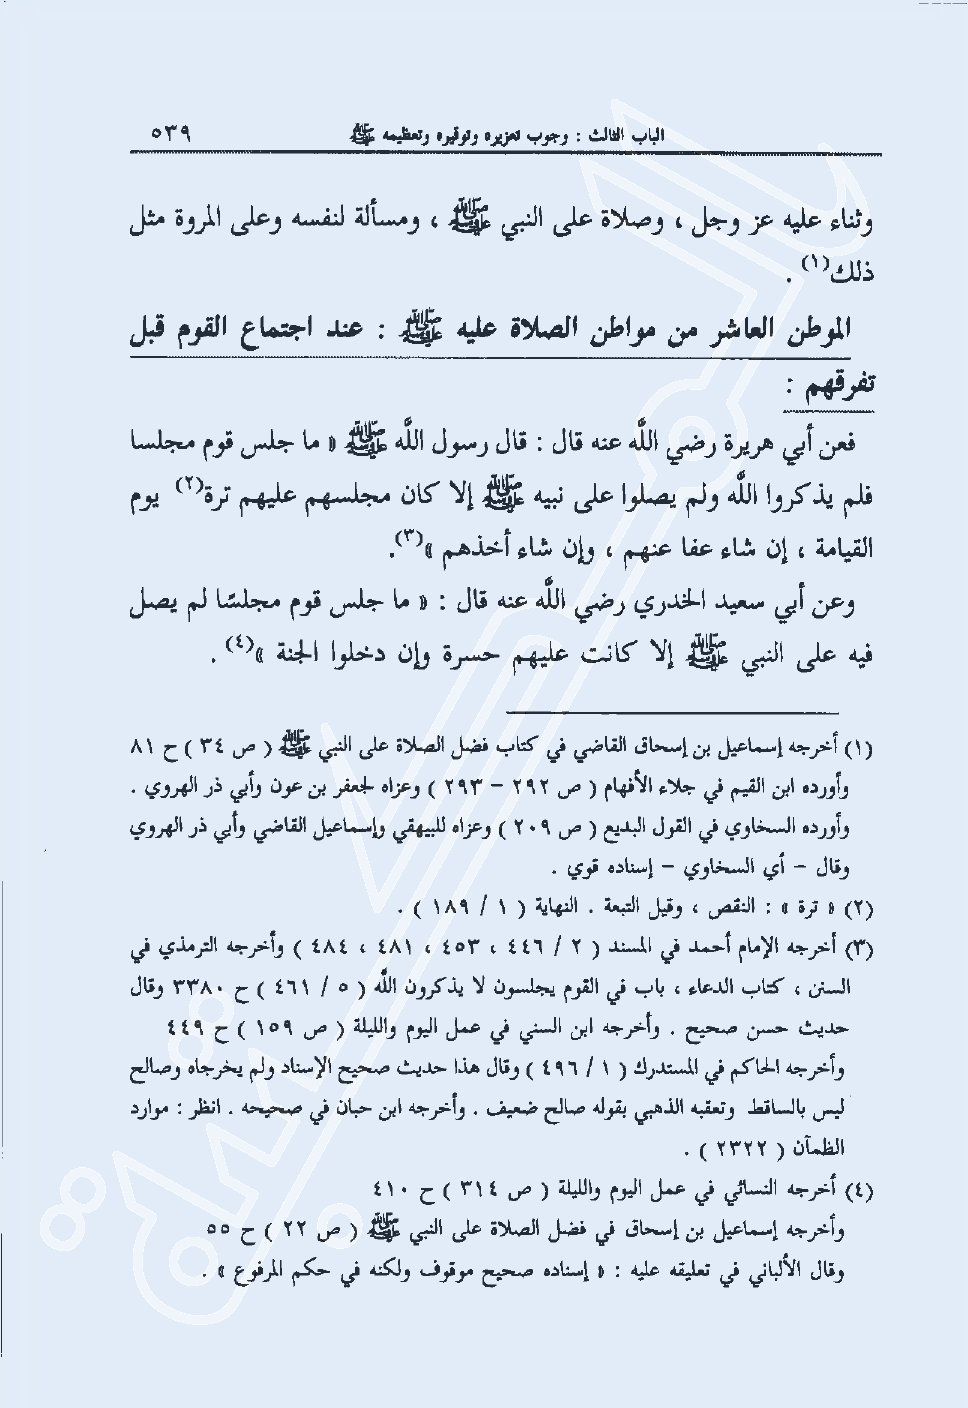 الباب الثالث : وجوب تعزيره وتوقيره وتعظيمه ﷺ ٥٣٩
وثناء عليه عز وجل ، وصلاة على النبي ﷺ ، ومسألة لنفسه وعلى المروة مثل
ذلك(١) .
الموطن العاشر من مواطن الصلاة عليه ﷺ : عند اجتماع القوم قبل
تفرقهم :
فعن أبي هريرة رضي الله عنه قال : قال رسول الله ﷺ « ما جلس قوم مجلسا
فلم يذكروا الله ولم يصلوا على نبيه ﷺ إلا كان مجلسهم عليهم ترة(٢) يوم
القيامة ، إن شاء عفا عنهم ، وإن شاء أخذهم »(٣).
وعن أبي سعيد الخدري رضي الله عنه قال : « ما جلس قوم مجلسًا لم يصل
فيه على النبي ﷺ إلا كانت عليهم حسرة وإن دخلوا الجنة »(٤) .
(١) أخرجه إسماعيل بن إسحاق القاضي في كتاب فضل الصلاة على النبي ﷺ ( ص ٣٤ ) ح ٨١
وأورده ابن القيم في جلاء الأفهام ( ص ٢٩٢ - ٢٩٣ ) وعزاه لجعفر بن عون وأبي ذر الهروي .
وأورده السخاوي في القول البديع ( ص ٢٠٩ ) وعزاه للبيهقي وإسماعيل القاضي وأبي ذر الهروي
وقال - أي السخاوي - إسناده قوي .
(٢) « ترة » : النقص ، وقيل التبعة . النهاية ( ١ / ١٨٩ ) .
(٣) أخرجه الإمام أحمد في المسند ( ٢ / ٤٤٦ ، ٤٥٣ ، ٤٨١ ، ٤٨٤ ) وأخرجه الترمذي في
السنن ، كتاب الدعاء ، باب في القوم يجلسون لا يذكرون الله ( ٥ / ٤٦١ ) ح ٣٣٨٠ وقال
حديث حسن صحيح . وأخرجه ابن السني في عمل اليوم والليلة ( ص ١٥٩ ) ح ٤٤٩
وأخرجه الحاكم في المستدرك ( ١ / ٤٩٦ ) وقال هذا حديث صحيح الإسناد ولم يخرجاه وصالح
ليس بالساقط وتعقبه الذهبي بقوله صالح ضعيف . وأخرجه ابن حبان في صحيحه . انظر : موارد
الظمآن ( ٢٣٢٢ ) .
(٤) أخرجه النسائي في عمل اليوم والليلة ( ص ٣١٤ ) ح ٤١٠
وأخرجه إسماعيل بن إسحاق في فضل الصلاة على النبي ﷺ ( ص ٢٢ ) ح ٥٥
وقال الألباني في تعليقه عليه : « إسناده صحيح موقوف ولكنه في حكم المرفوع » .